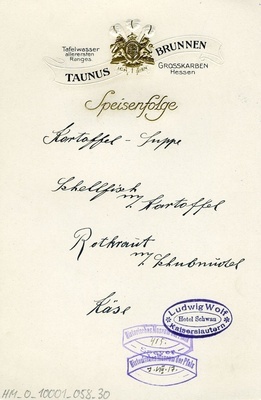 Tafelwasser
allerersten
Ranges
TAUNUS BRUNNEN
GROSSKARBEN
Hessen
Speisenfolge
Kartoffel - Suppe
Schellfisch
m/ Kartoffel
Rotkraut
m/ Schubnudel
Käse
Ludwig Wolf
Hotel Schwan
Kaiserslautern
Historisches Museum der Pfalz
HM_0_10001_058_30